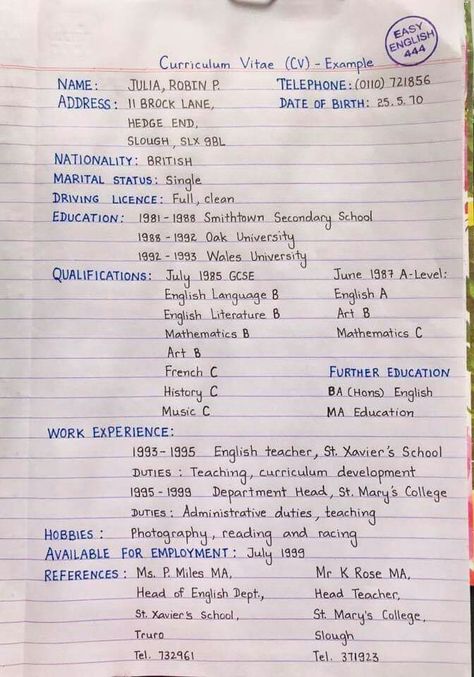 EASY
ENGLISH
444
Curriculum Vitae (CV) - Example
NAME: JULIA, ROBIN P. TELEPHONE: (0110) 721856
ADDRESS: 11 BROCK LANE, DATE OF BIRTH: 25.5.70
HEDGE END,
SLOUGH, SLX 9BL
NATIONALITY: BRITISH
MARITAL STATUS: Single
DRIVING LICENCE: Full, clean
EDUCATION: 1981-1988 Smithtown Secondary School
1988-1992 Oak University
1992-1993 Wales University
QUALIFICATIONS: July 1985 GCSE June 1987 A-Level:
English Language B English A
English Literature B Art B
Mathematics B Mathematics C
Art B
French C FURTHER EDUCATION
History C BA (Hons) English
Music C MA Education
WORK EXPERIENCE:
1993-1995 English teacher, St. Xavier's School
DUTIES: Teaching, curriculum development
1995-1999 Department Head, St. Mary's College
DUTIES: Administrative duties, teaching
HOBBIES: Photography, reading and racing
AVAILABLE FOR EMPLOYMENT: July 1999
REFERENCES: Ms. P. Miles MA, Mr K Rose MA,
Head of English Dept., Head Teacher,
St. Xavier's School, St. Mary's College,
Truro Slough
Tel. 732961 Tel. 371923